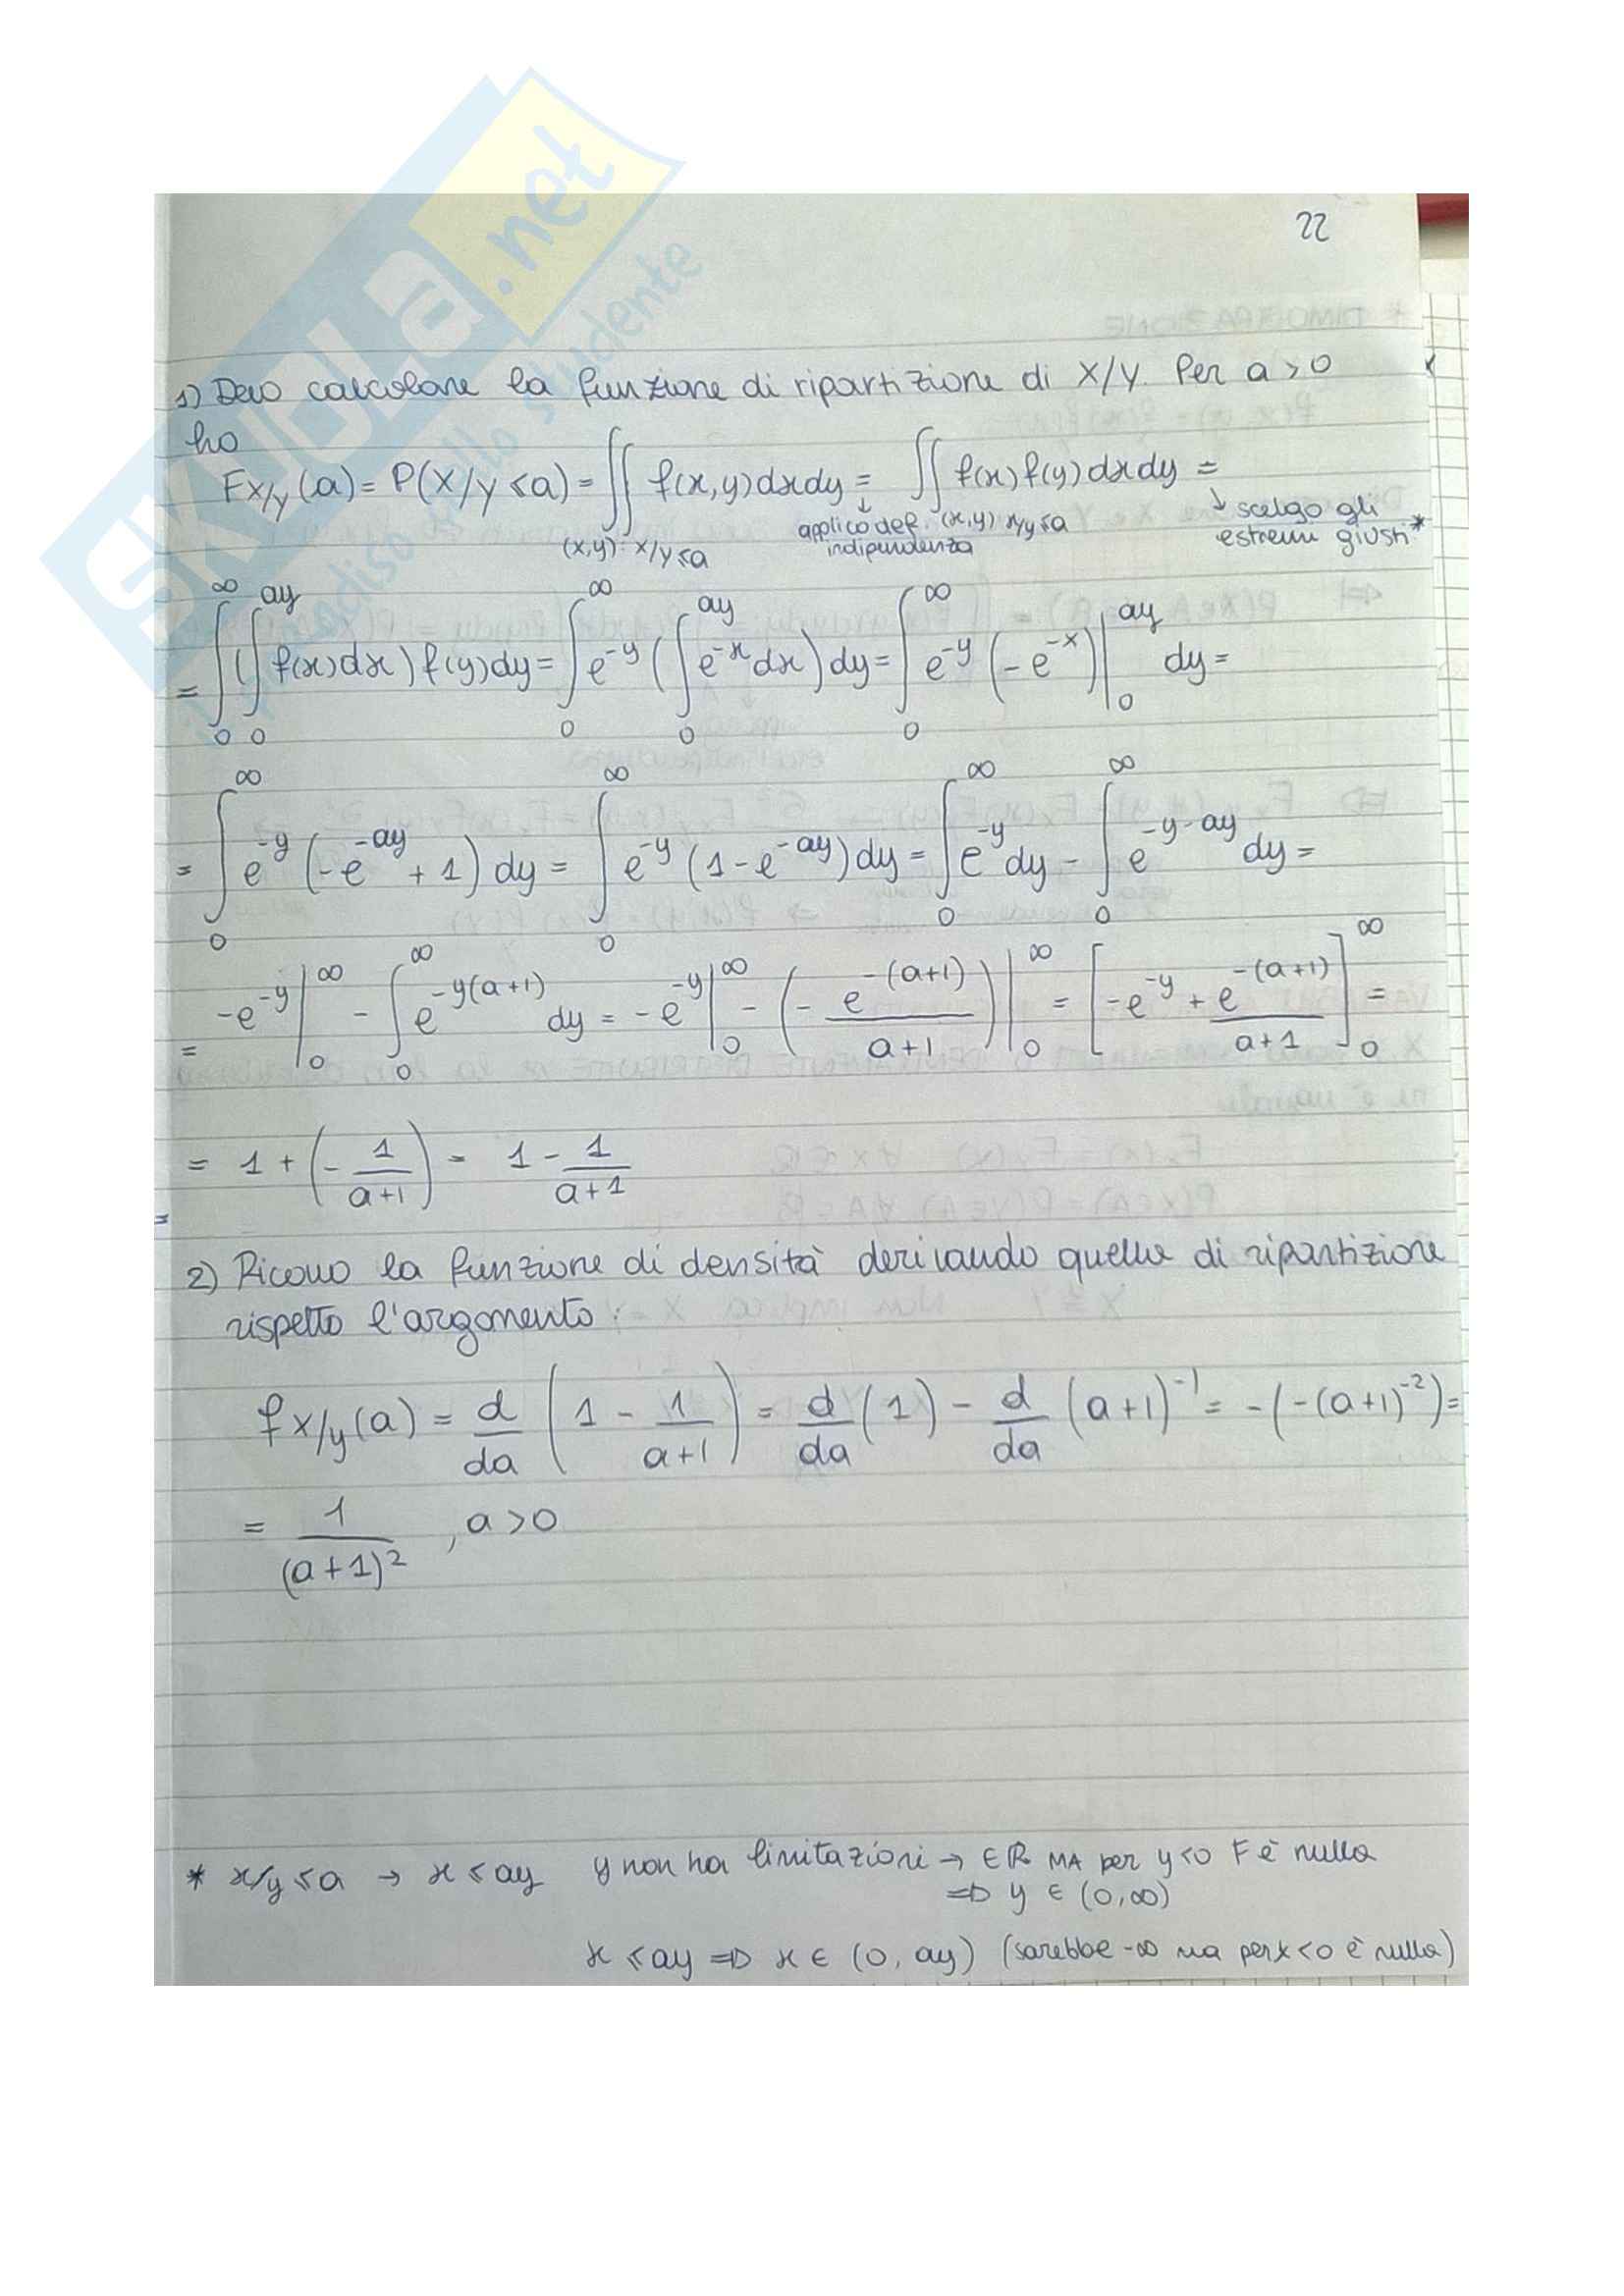 SKUOLA.net
paradiso dello studente
22
1) Devo calcolare la funzione di ripartizione di X/Y. Per a > 0
ho
F_{X/Y}(a) = P(X/Y ≤ a) = ∬ f(x,y)dxdy = ∬ f(x)f(y)dxdy =
(x,y): x/y ≤ a
↓ applico def. indipendenza
(x,y) x/y ≤ a
↓ scelgo gli estremi giusti*
= ∫_0^∞ (∫_0^{ay} f(x)dx) f(y)dy = ∫_0^∞ e^{-y} (∫_0^{ay} e^{-x}dx) dy = ∫_0^∞ e^{-y} (-e^{-x})|_0^{ay} dy =
= ∫_0^∞ e^{-y} (-e^{-ay} + 1) dy = ∫_0^∞ e^{-y} (1 - e^{-ay}) dy = ∫_0^∞ e^{-y} dy - ∫_0^∞ e^{-y-ay} dy =
= -e^{-y}|_0^∞ - ∫_0^∞ e^{-y(a+1)} dy = -e^{-y}|_0^∞ - (- e^{-(a+1)}/(a+1))|_0^∞ = [-e^{-y} + e^{-(a+1)}/(a+1)]_0^∞ =
= 1 + (- 1/(a+1)) = 1 - 1/(a+1)
2) Ricavo la funzione di densità derivando quella di ripartizione
rispetto l'argomento:
f_{X/Y}(a) = d/da (1 - 1/(a+1)) = d/da (1) - d/da (a+1)^{-1} = -(-(a+1)^{-2}) =
= 1/(a+1)^2 , a > 0
* x/y ≤ a → x ≤ ay y non ha limitazioni → ∈ ℝ MA per y<0 F è nulla
⇒ y ∈ (0,∞)
x ≤ ay ⇒ x ∈ (0, ay) (sarebbe -∞ ma per x<0 è nulla)